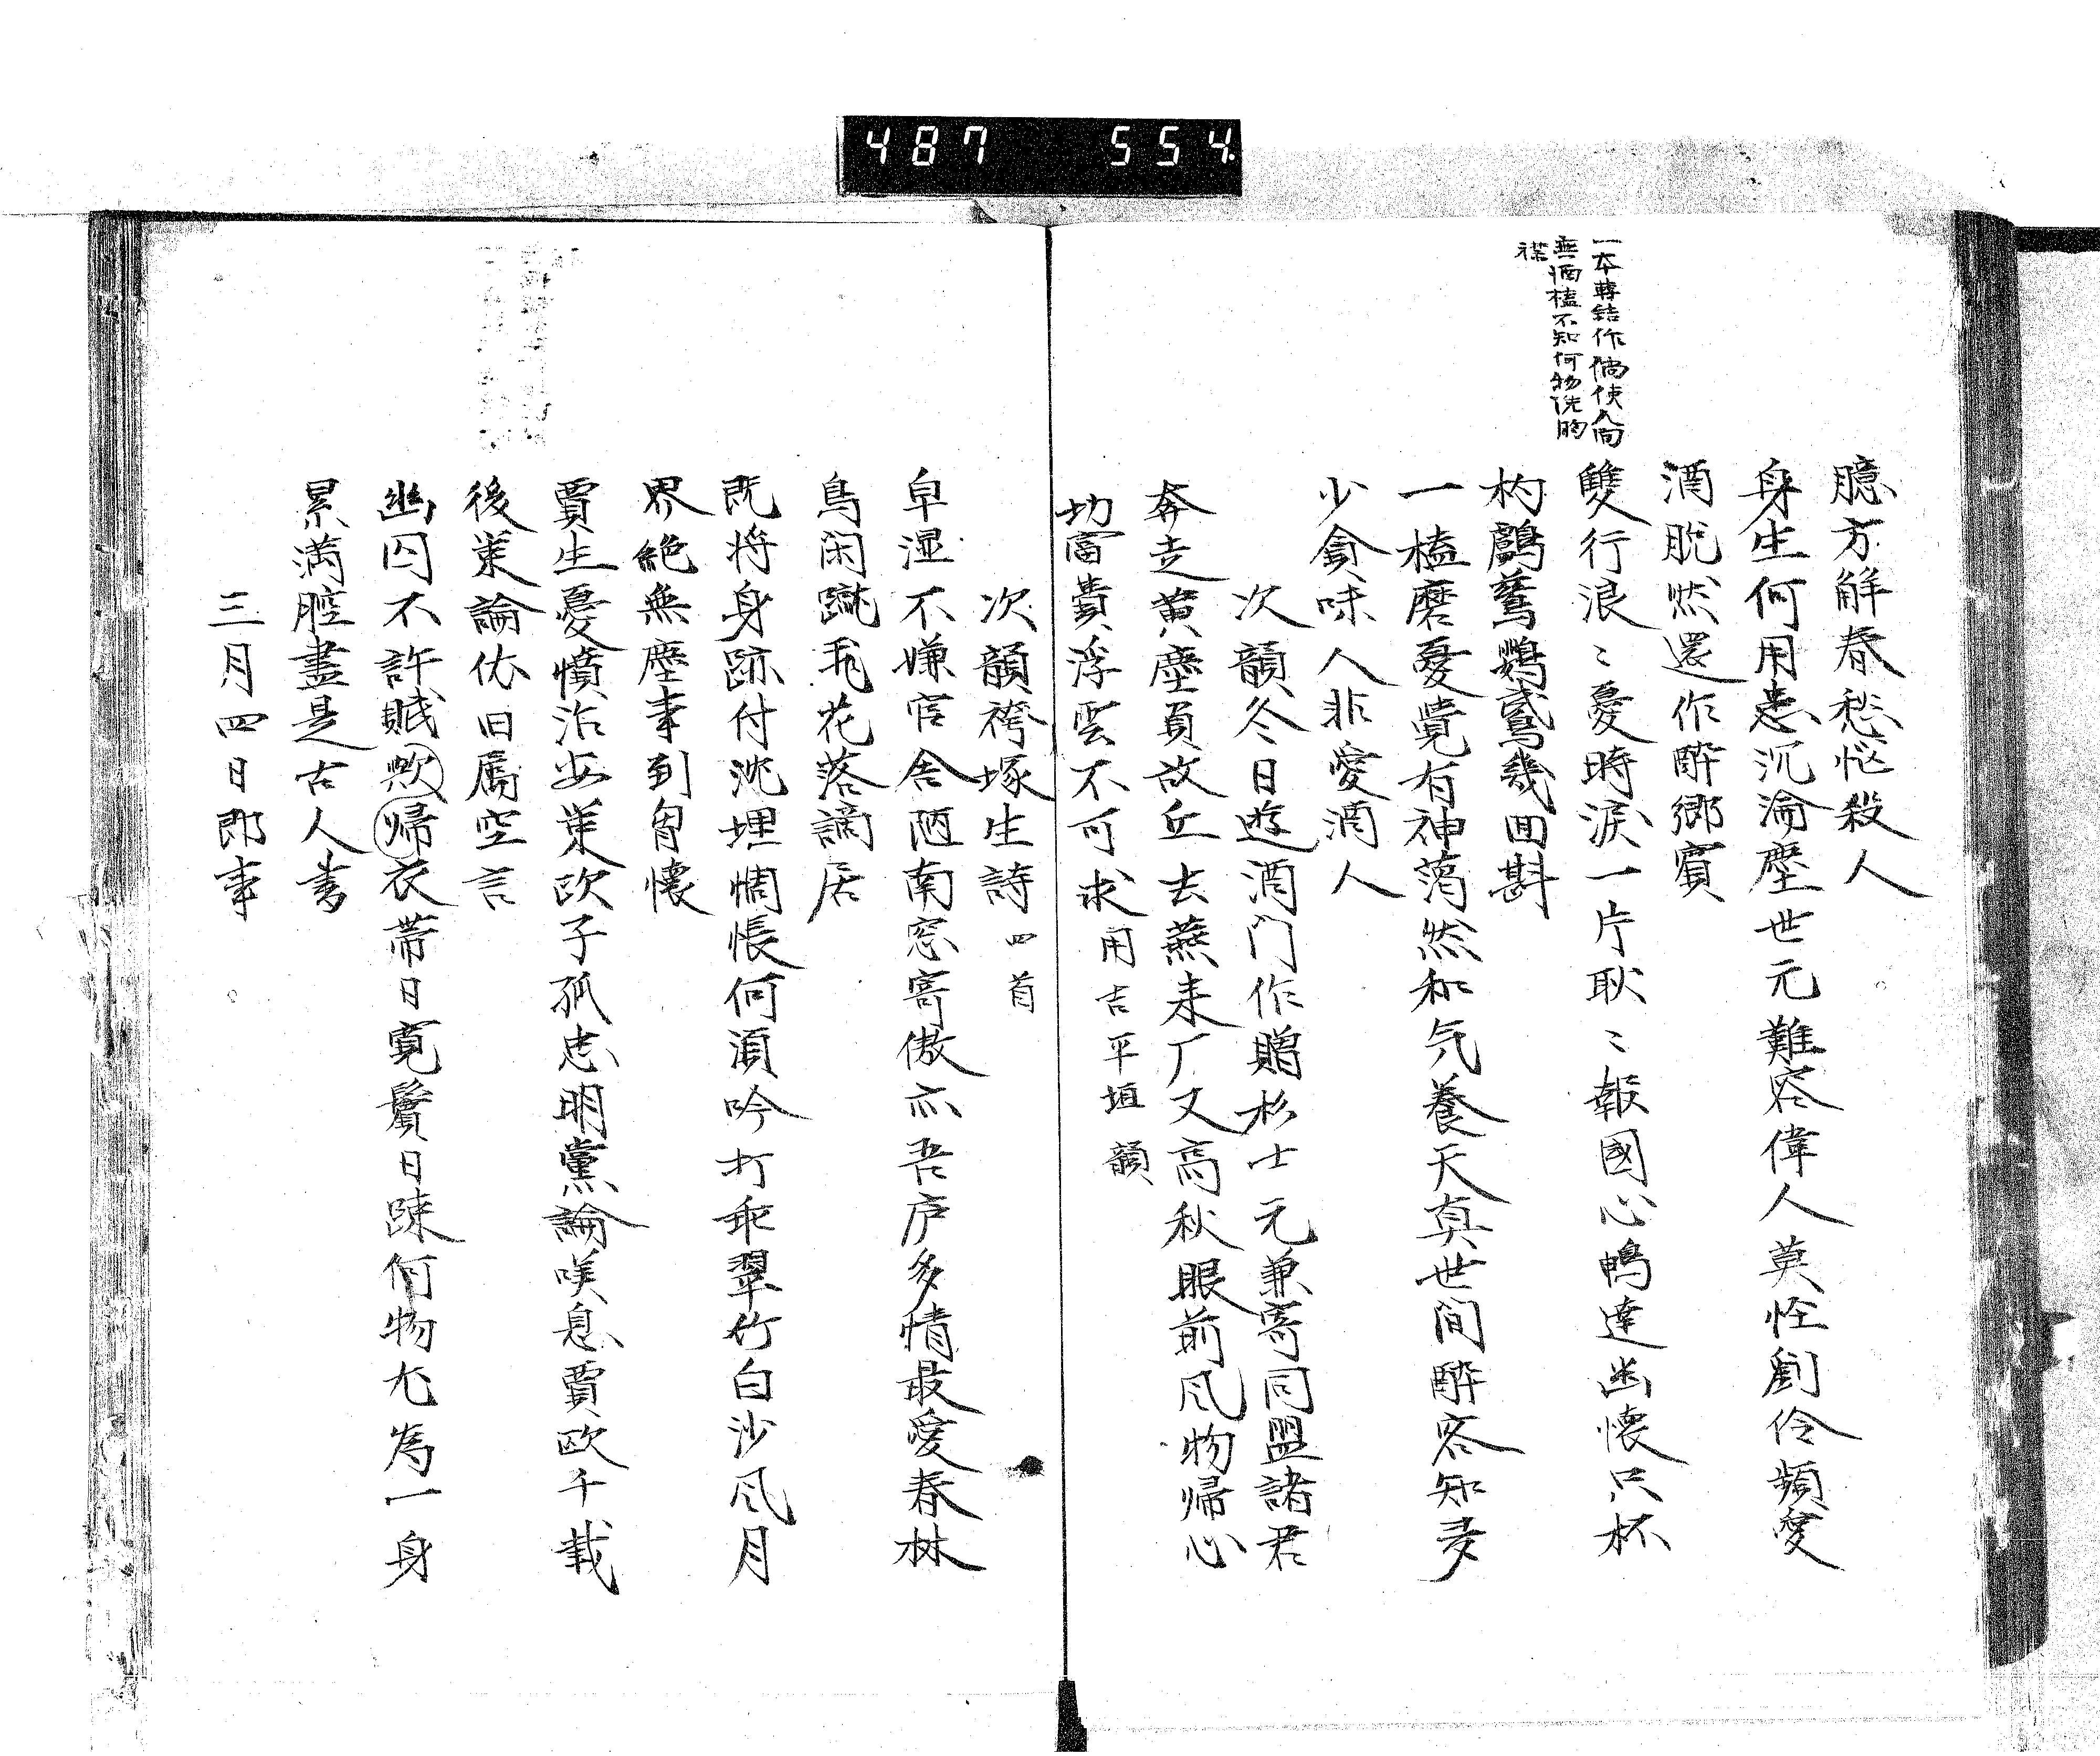 487 554
一本轉結作倘使人間
無酒榼不知何物洗胸
襟
臆方解春愁惱殺人
身生何用患沉淪塵世元難容偉人莫怪劉伶頻愛
酒脱然還作醉郷賓
雙行浪〻憂時涙一片耿〻報國心鴨達幽懷只杯
杓鸕鶿鸚鵡幾回斟
一榼磨憂覚有神藹然和気養天真世间醉客知多
少貪味人非愛酒人
次韻冬日遊酒门作贈杉士元兼寄同盟諸君
奔走黄塵負故丘去燕来厂又高秋眼前风物帰心
切富貴浮雲不可求用吉平垣韻
次韻袴塚生詩四首
卑湿不嫌官舎陋南窓寄傲亦吾庐多情最愛春林
鳥闲蹴飛花落謫居
既将身跡付沈埋惆悵何須吟打乖翠竹白沙风月
界絶無塵事到胷懐
賈生憂憤治安策欧子孤忠明黨論嘆息賈欧千載
後策論依旧属空言
幽囚不許賦歟帰衣帯日寛鬢日踈何物尤為一身
累満腔盡是古人書
三月四日即事